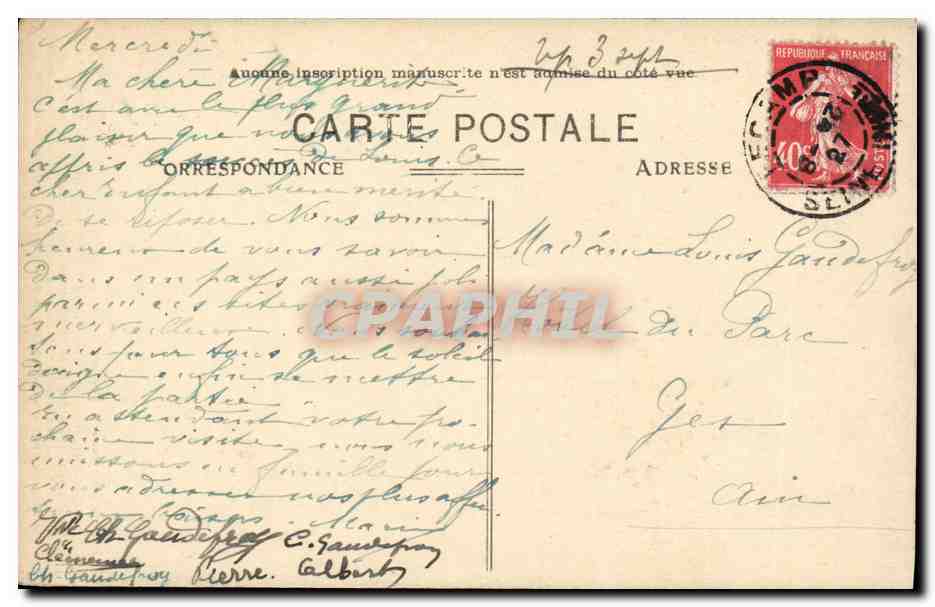 Mercredi
rép 3 sept
Aucune inscription manuscrite n'est admise du côté vue
Ma chère Marguerite
c'est avec le plus grand
plaisir que nous avons
CARTE POSTALE
appris le succès de Louis. Ce
CORRESPONDANCE
ADRESSE
cher enfant a bien mérité
de se reposer. Nous sommes
heureux de vous savoir
dans un pays aussi joli
parmi ces sites
merveilleux.
sous pour tous que le soleil
daigne enfin se mettre
de la partie
En attendant votre pro-
chaine visite nous nous
unissons en famille pour
vous adresser nos plus affec
Marie
Ch. Gaudefroy C. Gaudefroy
Clémence
Ch. Gaudefroy Pierre. Albert
REPUBLIQUE FRANÇAISE
40c
POSTES
FECAMP
27
SEINE
Madame Louis Gaudefroy
Hôtel du Parc
Gex
Ain
CPAPHIL